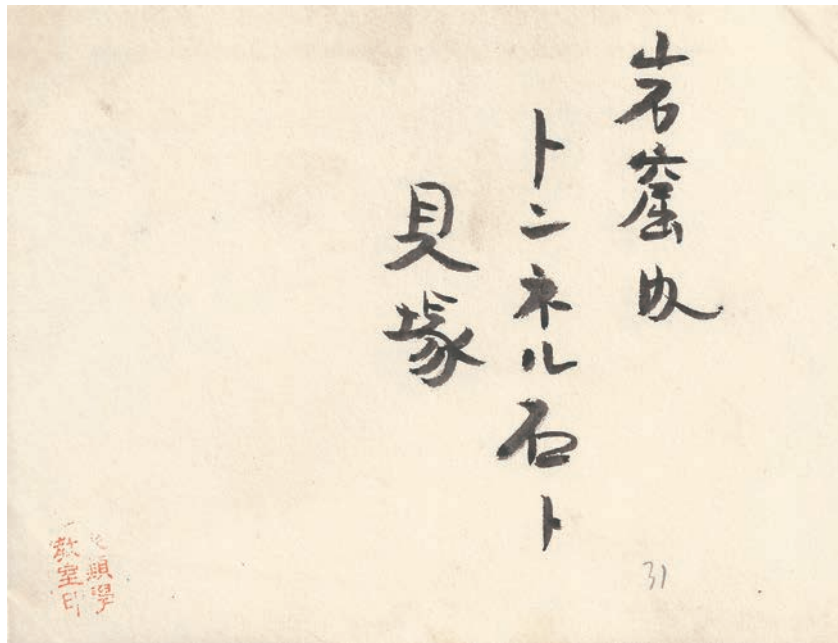 岩窟内
トンネル石ト
貝塚
31
類學
教室印